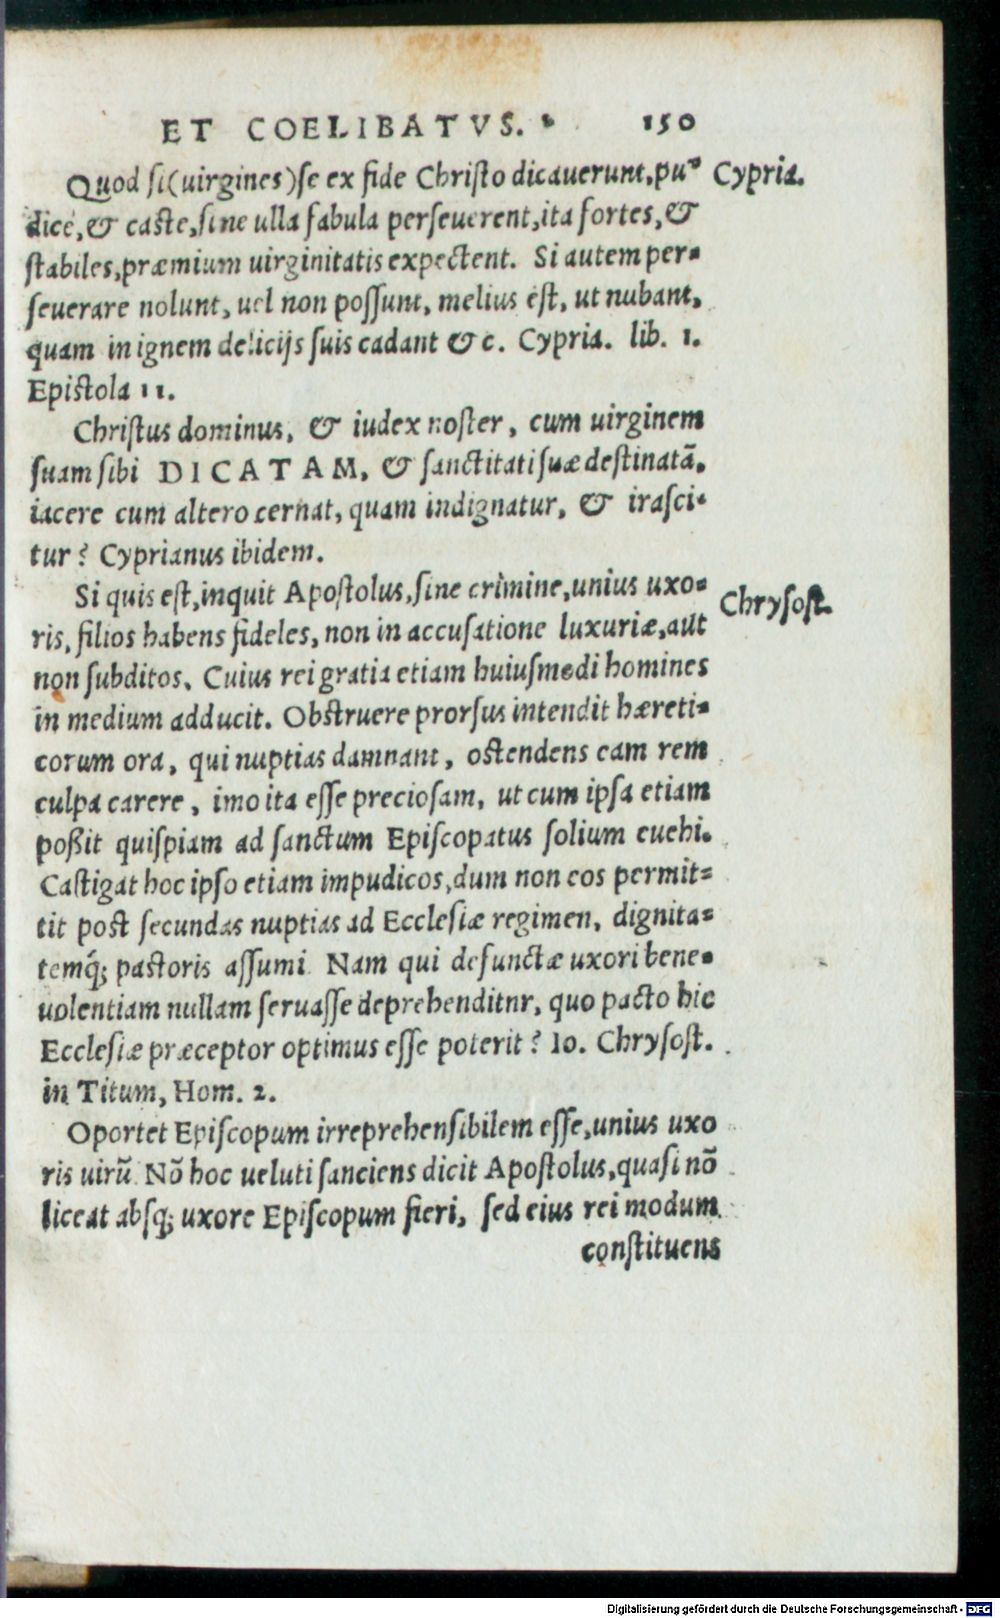 ET COELIBATVS. 150
Quod si (uirgines) se ex fide Christo dicauerunt, pu- Cypria.
dicé, & caste, sine ulla fabula perseuerent, ita fortes, &
stabiles, præmium uirginitatis expectent. Si autem per-
seuerare nolunt, uel non possunt, melius est, ut nubant,
quam in ignem delicijs suis cadant &c. Cypria. lib. 1.
Epistola 11.
Christus dominus, & iudex noster, cum uirginem
suam sibi DICATAM, & sanctitati suæ destinatã,
iacere cum altero cernat, quam indignatur, & irasci-
tur? Cyprianus ibidem.
Si quis est, inquit Apostolus, sine crimine, unius uxo- Chrysost.
ris, filios habens fideles, non in accusatione luxuriæ, aut
non subditos. Cuius rei gratia etiam huiusmodi homines
in medium adducit. Obstruere prorsus intendit hæreti-
corum ora, qui nuptias damnant, ostendens eam rem
culpa carere, imo ita esse preciosam, ut cum ipsa etiam
poßit quispiam ad sanctum Episcopatus solium euehi.
Castigat hoc ipso etiam impudicos, dum non eos permit-
tit post secundas nuptias ad Ecclesiæ regimen, dignita-
temq́; pastoris assumi. Nam qui defunctæ uxori bene-
uolentiam nullam seruasse deprehenditnr, quo pacto hic
Ecclesiæ præceptor optimus esse poterit? Io. Chrysost.
in Titum, Hom. 2.
Oportet Episcopum irreprehensibilem esse, unius uxo
ris uirũ. Nõ hoc ueluti sanciens dicit Apostolus, quasi nõ
liceat absq; uxore Episcopum fieri, sed eius rei modum
constituens
Digitalisierung gefördert durch die Deutsche Forschungsgemeinschaft - DFG